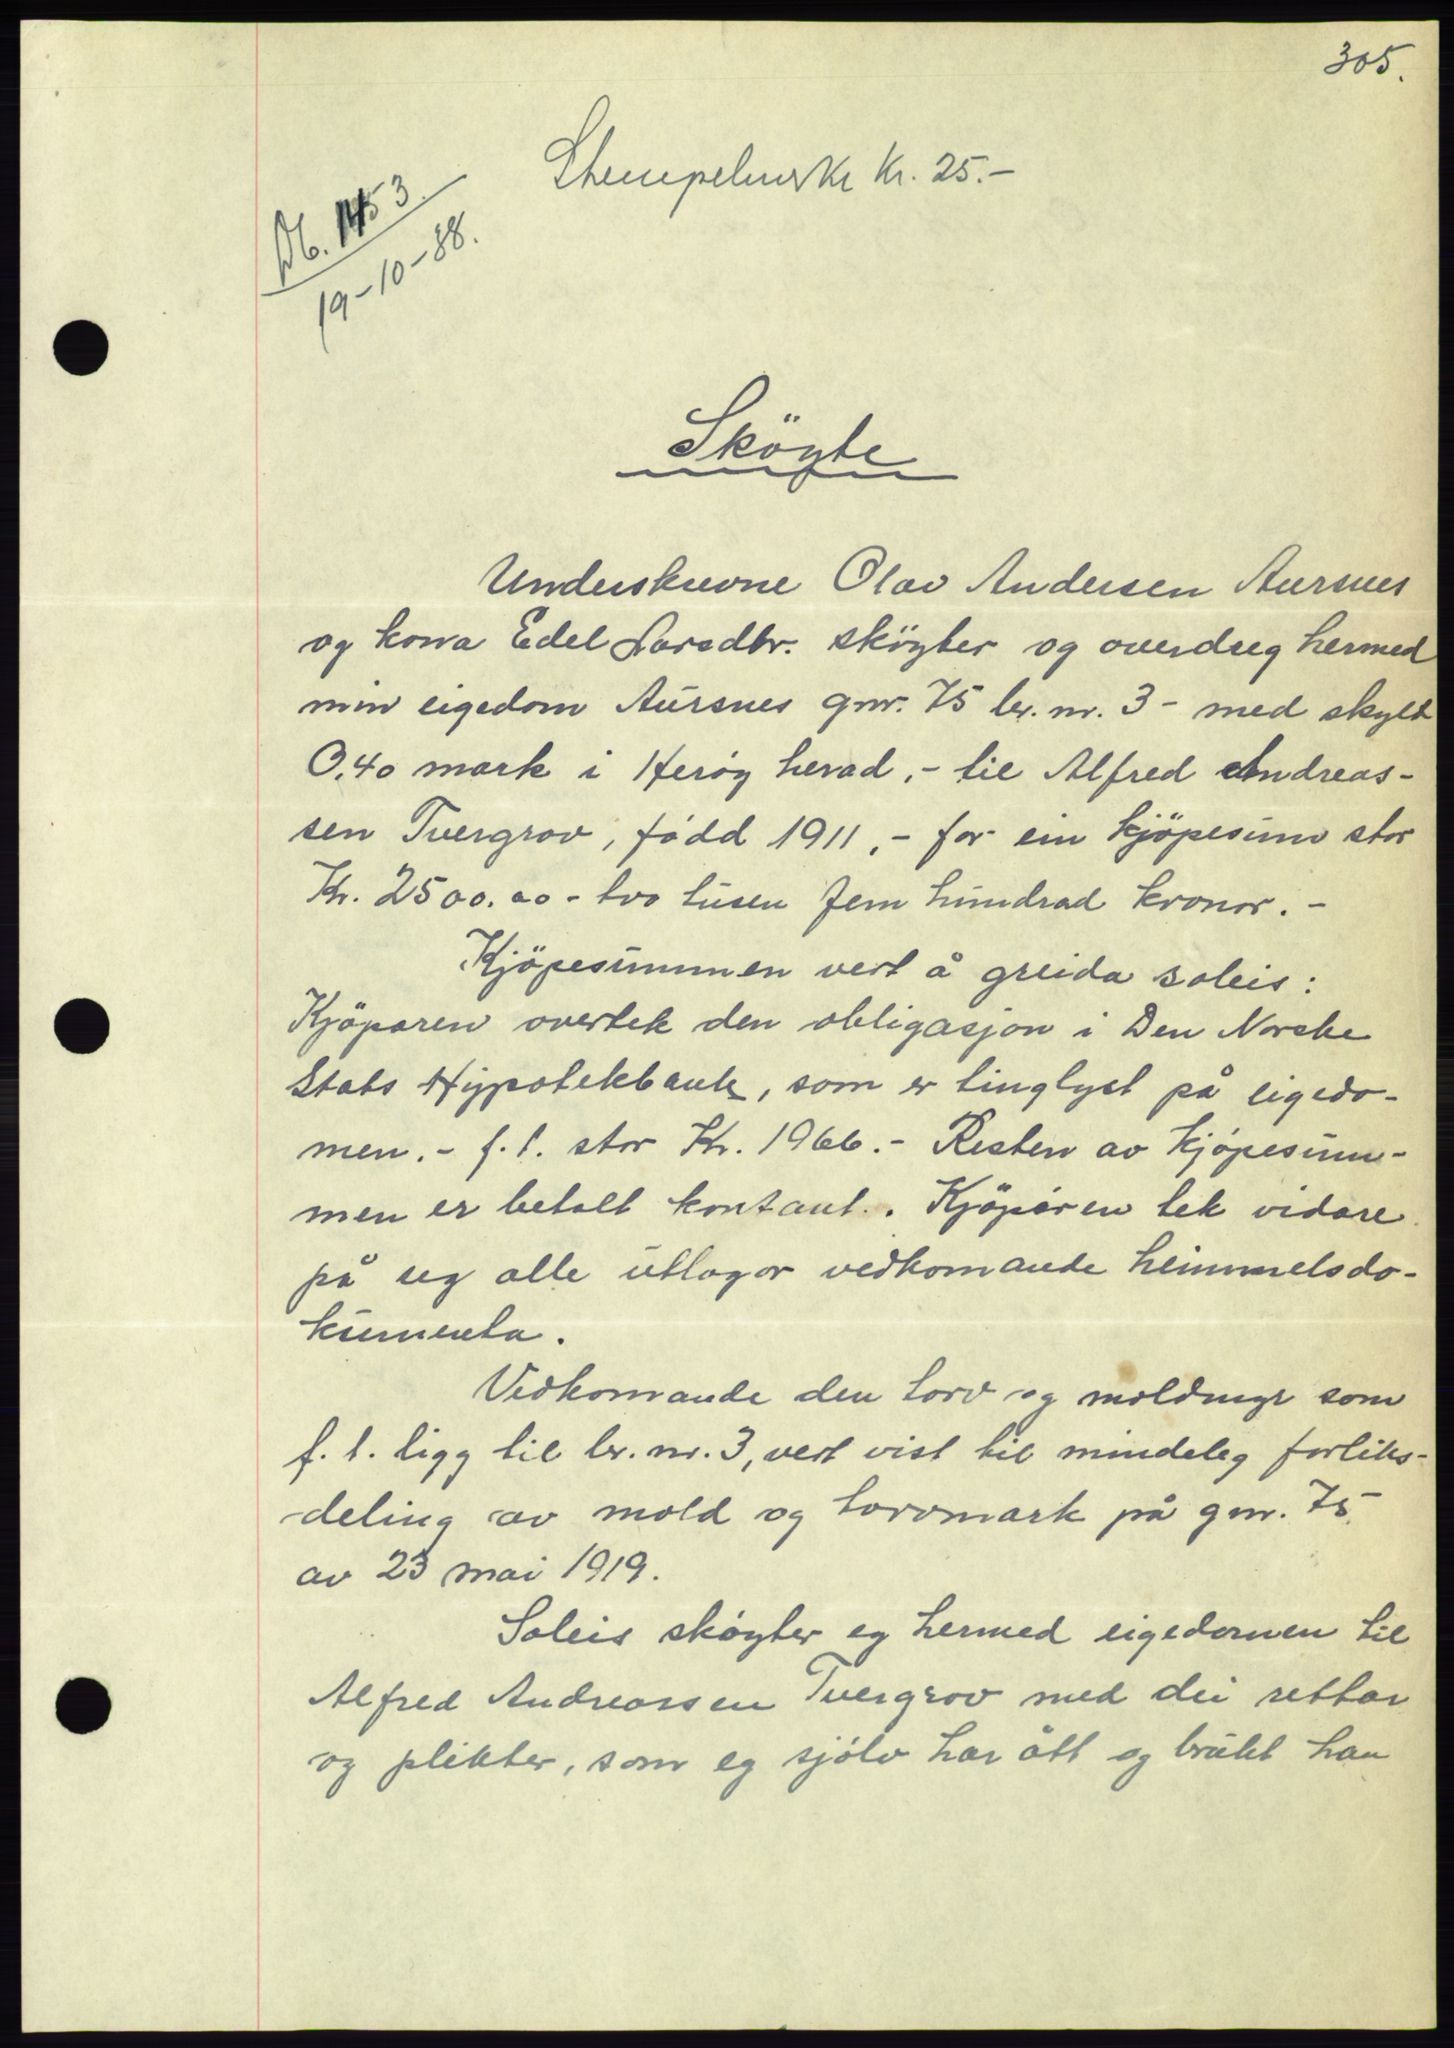 305.
Stempelmerke kr. 25.-
Db. 1453.
19-10-38.
Sköyte
Underskrevne Olav Andersen Aursnes
og kona Edel Larsdtr. sköyter og overdreg hermed
min eigedom Aursnes gnr. 75 br. nr. 3 - med skyld
0,40 mark i Heröy herad, - til Alfred Andreas-
sen Tvergrov, född 1911, - for ein kjöpesum stor
Kr. 2500.00 - tvo tusen fem hundrad kronor. -
Kjöpesummen vert å greida soleis:
Kjöparen overtek den obligasjon i Den Norske
Stats Hypotekbank, som er tinglyst på eigedo-
men. - f. t. stor Kr. 1966. - Resten av kjöpesum-
men er betalt kontant. Kjöparen tek vidare
på seg alle utlogor vedkomande heimmelsdo-
kumenta.
Vedkomande den torv og moldmyr som
f. t. ligg til br. nr. 3, vert vist til mindeleg forliks-
deling av mold og torvmark på gnr. 75
av 23 mai 1919.
Soleis sköyter eg hermed eigedomen til
Alfred Andreassen Tvergrov med dei rettar
og plikter, som eg sjölv har ått og brukt han